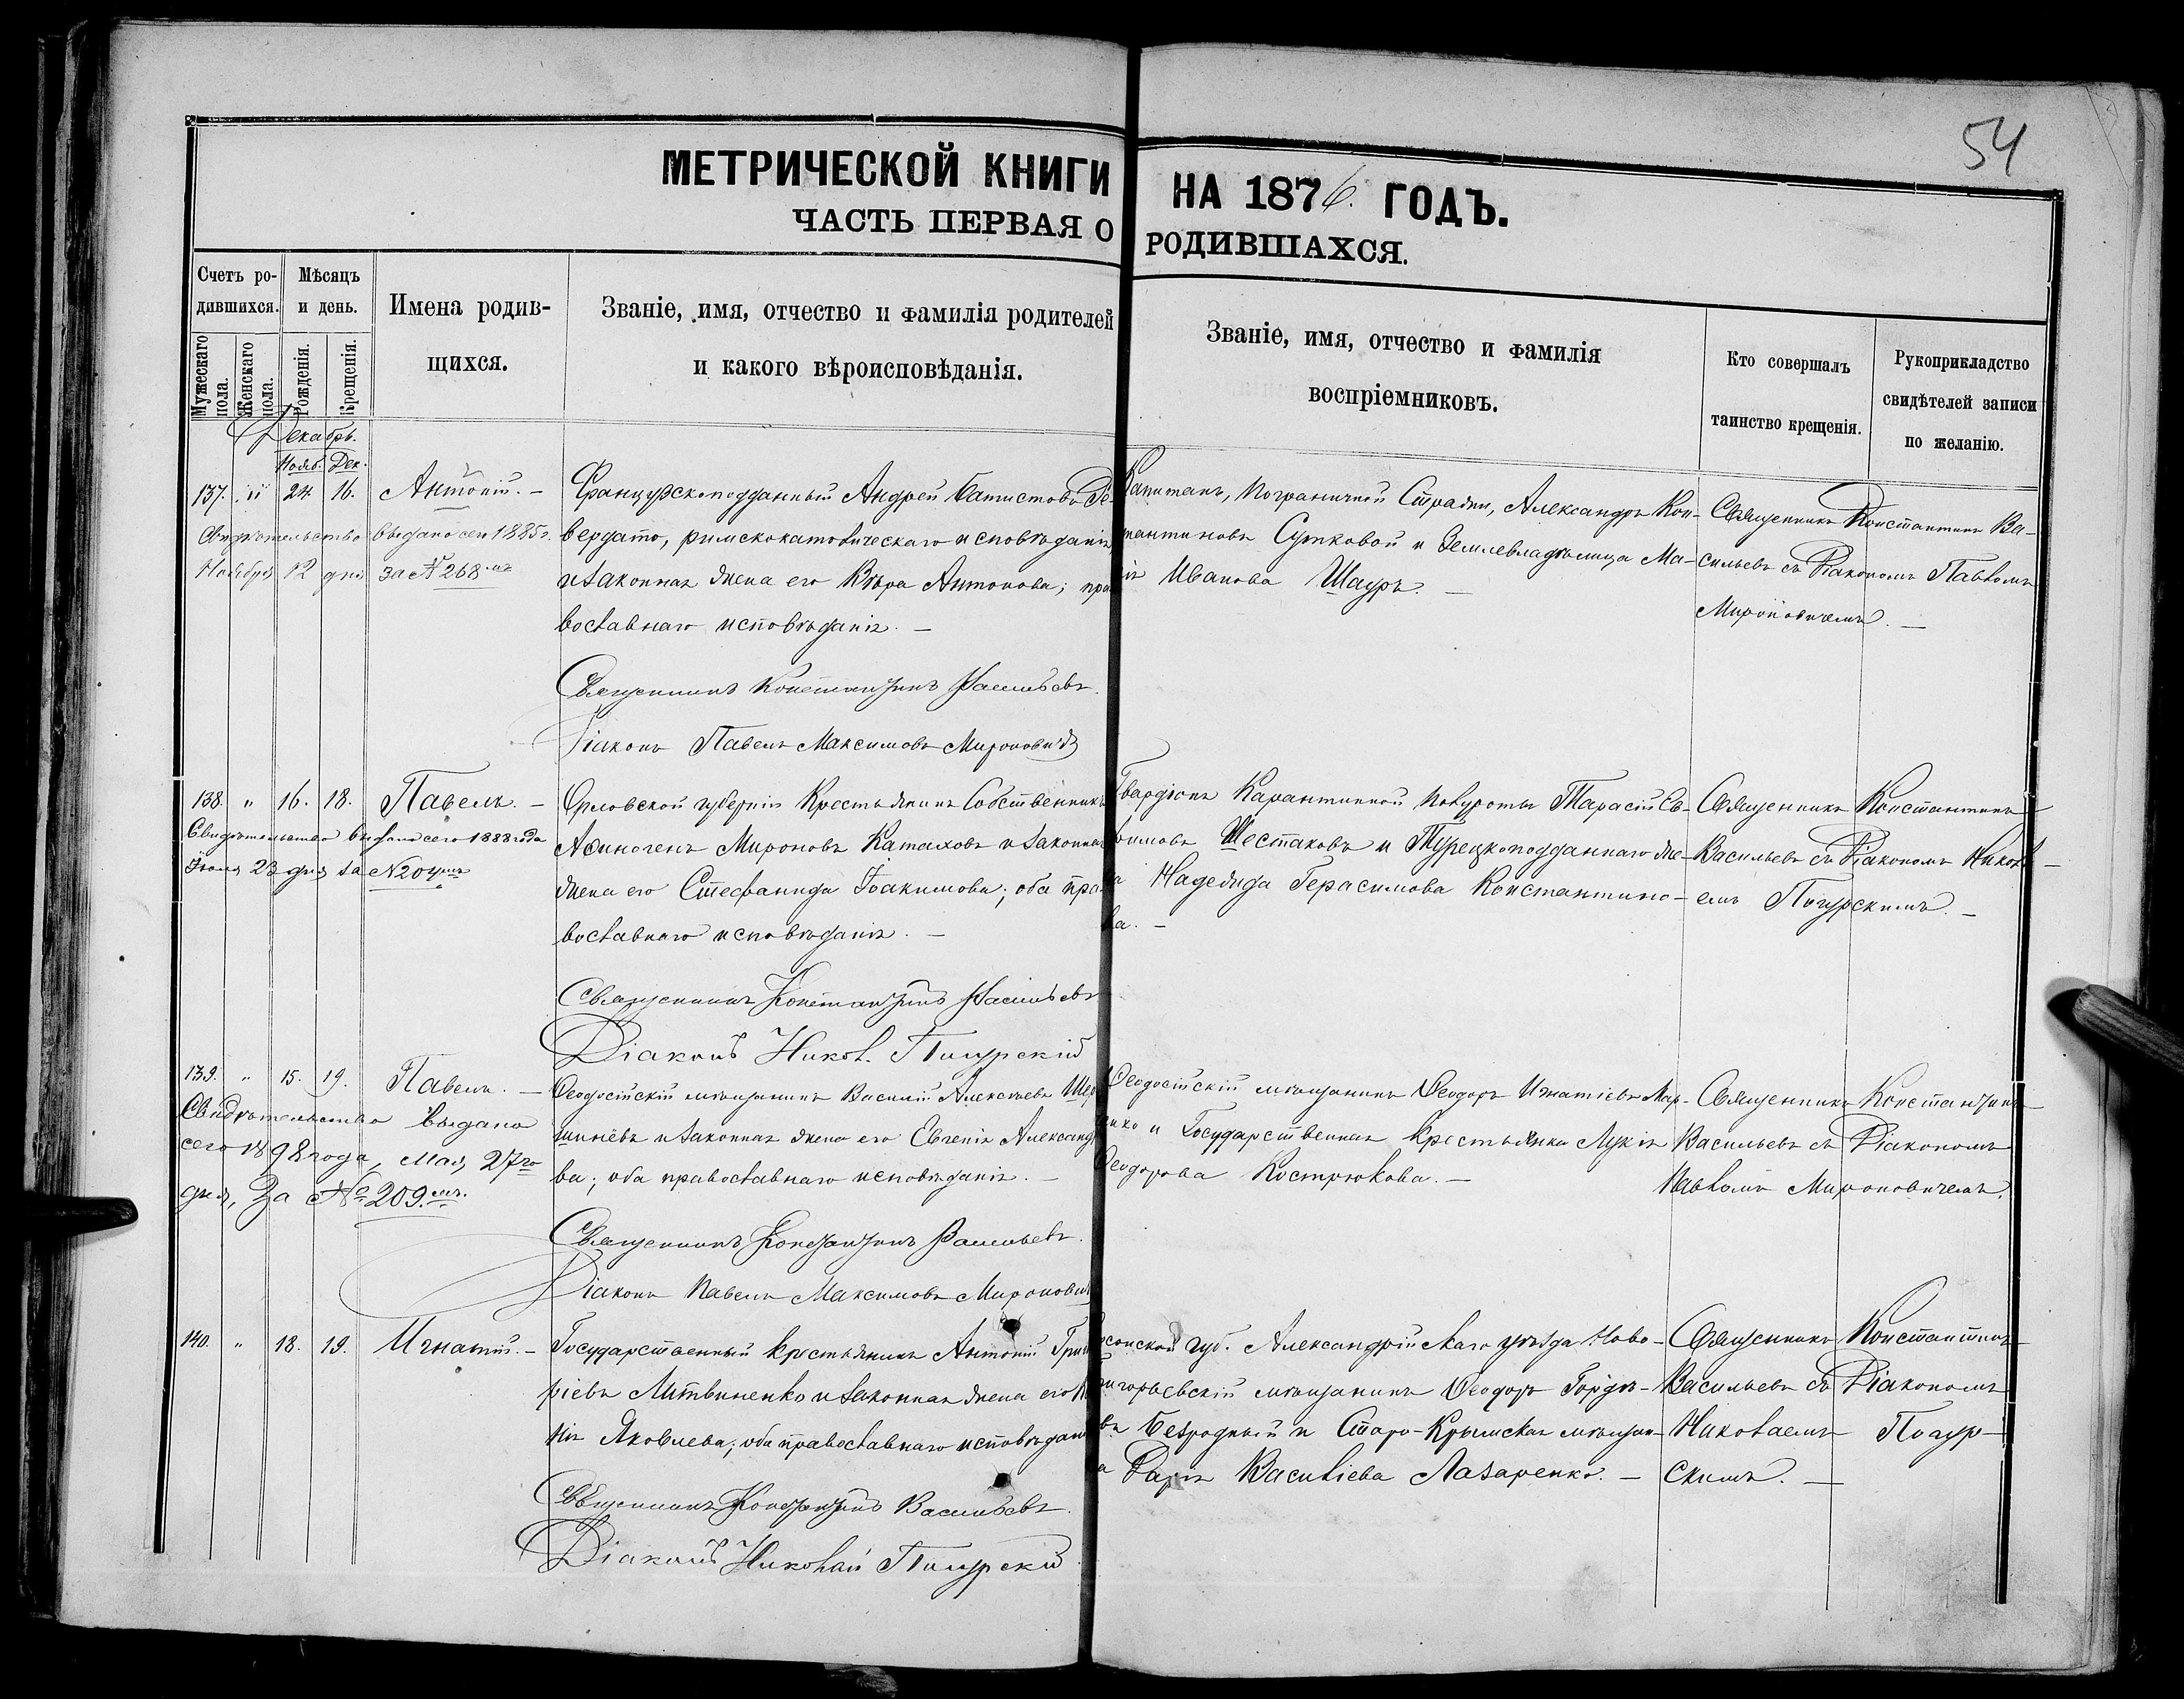 54
МЕТРИЧЕСКОЙ КНИГИ НА 1876. ГОДЪ.
ЧАСТЬ ПЕРВАЯ О РОДИВШАХСЯ.
Счетъ ро-
дившихся.
Мужескаго пола.
Женскаго пола.
Мѣсяцъ
и день.
Рожденія.
Крещенія.
Имена родив-
щихся.
Званіе, имя, отчество и фамилія родителей
и какого вѣроисповѣданія.
Званіе, имя, отчество и фамилія
воспріемниковъ.
Кто совершалъ
таинство крещенія.
Рукоприкладство
свидѣтелей записи
по желанію.
Декабрь.
Нояб. Дек.
137. " 24. 16. Антоній. —
Свидѣтельство выдано сего 1885 г.
Ноября 12 дня за № 268мъ
Французскоподданный Андрей Батистовъ Де-
вердато, римскокатолическаго исповѣданія
и законная жена его Вѣра Антонова; пра
вославнаго исповѣданія. —
Священникъ Константинъ Васильевъ.
Діаконъ Павелъ Максимовъ Мироновичъ
Капитанъ, Пограничной Стражи, Александръ Кон-
тантиновъ Сутковой и Землевладѣлица Ма-
ія Иванова Шауръ. —
Священникъ Константинъ Ва-
сильевъ съ Діакономъ Павломъ
Мироновичемъ. —
138. " 16. 18. Павелъ. —
Свидѣтельство выдано сего 1888 года
Іюля 23 дня за № 204мъ
Орловской губерніи Крестьянинъ Собственникъ
Аѳиногенъ Мироновъ Катаховъ и законная
жена его Стефанида Іоакимова; оба пра-
вославнаго исповѣданія. —
Священникъ Константинъ Васильевъ
Діаконъ Никол. Пигурскій
Гвардіонъ Карантинной Полуроты Тарасій Ев-
фимовъ Шестаковъ и Турецкоподданнаго же-
а Надежда Герасимова Константино-
ва. —
Священникъ Константинъ
Васильевъ съ Діакономъ Никола-
емъ Пигурскимъ. —
139. " 15. 19. Павелъ. —
Свидѣтельство выдано
сего 1898 года, Мая 27го
дня, за № 209.мъ.
Ѳеодосійскій мѣщанинъ Василій Алексѣевъ Шер
шинёвъ и законная жена его Евгенія Александ
ва; оба православнаго исповѣданія. —
Священникъ Константинъ Васильевъ.
Діаконъ Павелъ Максимовъ Мироновичъ
Ѳеодосійскій мѣщанинъ Ѳеодоръ Игнатіевъ Мар-
нко и Государственная крестьянка Лукія
Ѳеодорова Кострюкова. —
Священникъ Константинъ
Васильевъ съ Діакономъ
Павломъ Мироновичемъ.
140. " 18. 19. Игнатій. —
Государственный крестьянинъ Антоній Григо
ріевъ Литвиненко и законная жена его
нія Яковлева; оба православнаго исповѣдан
Священникъ Константинъ Васильевъ.
Діаконъ Николай Пигурскій
рсонской губ. Александрійскаго уѣзда Ново-
ригорьевскій мѣщанинъ Ѳеодоръ Гордѣ-
въ Безродный и Старо-Крымская мѣщан-
а Дарія Василіева Лазаренко. —
Священникъ Константинъ
Васильевъ съ Діакономъ
Николаемъ Пигур-
скимъ. —